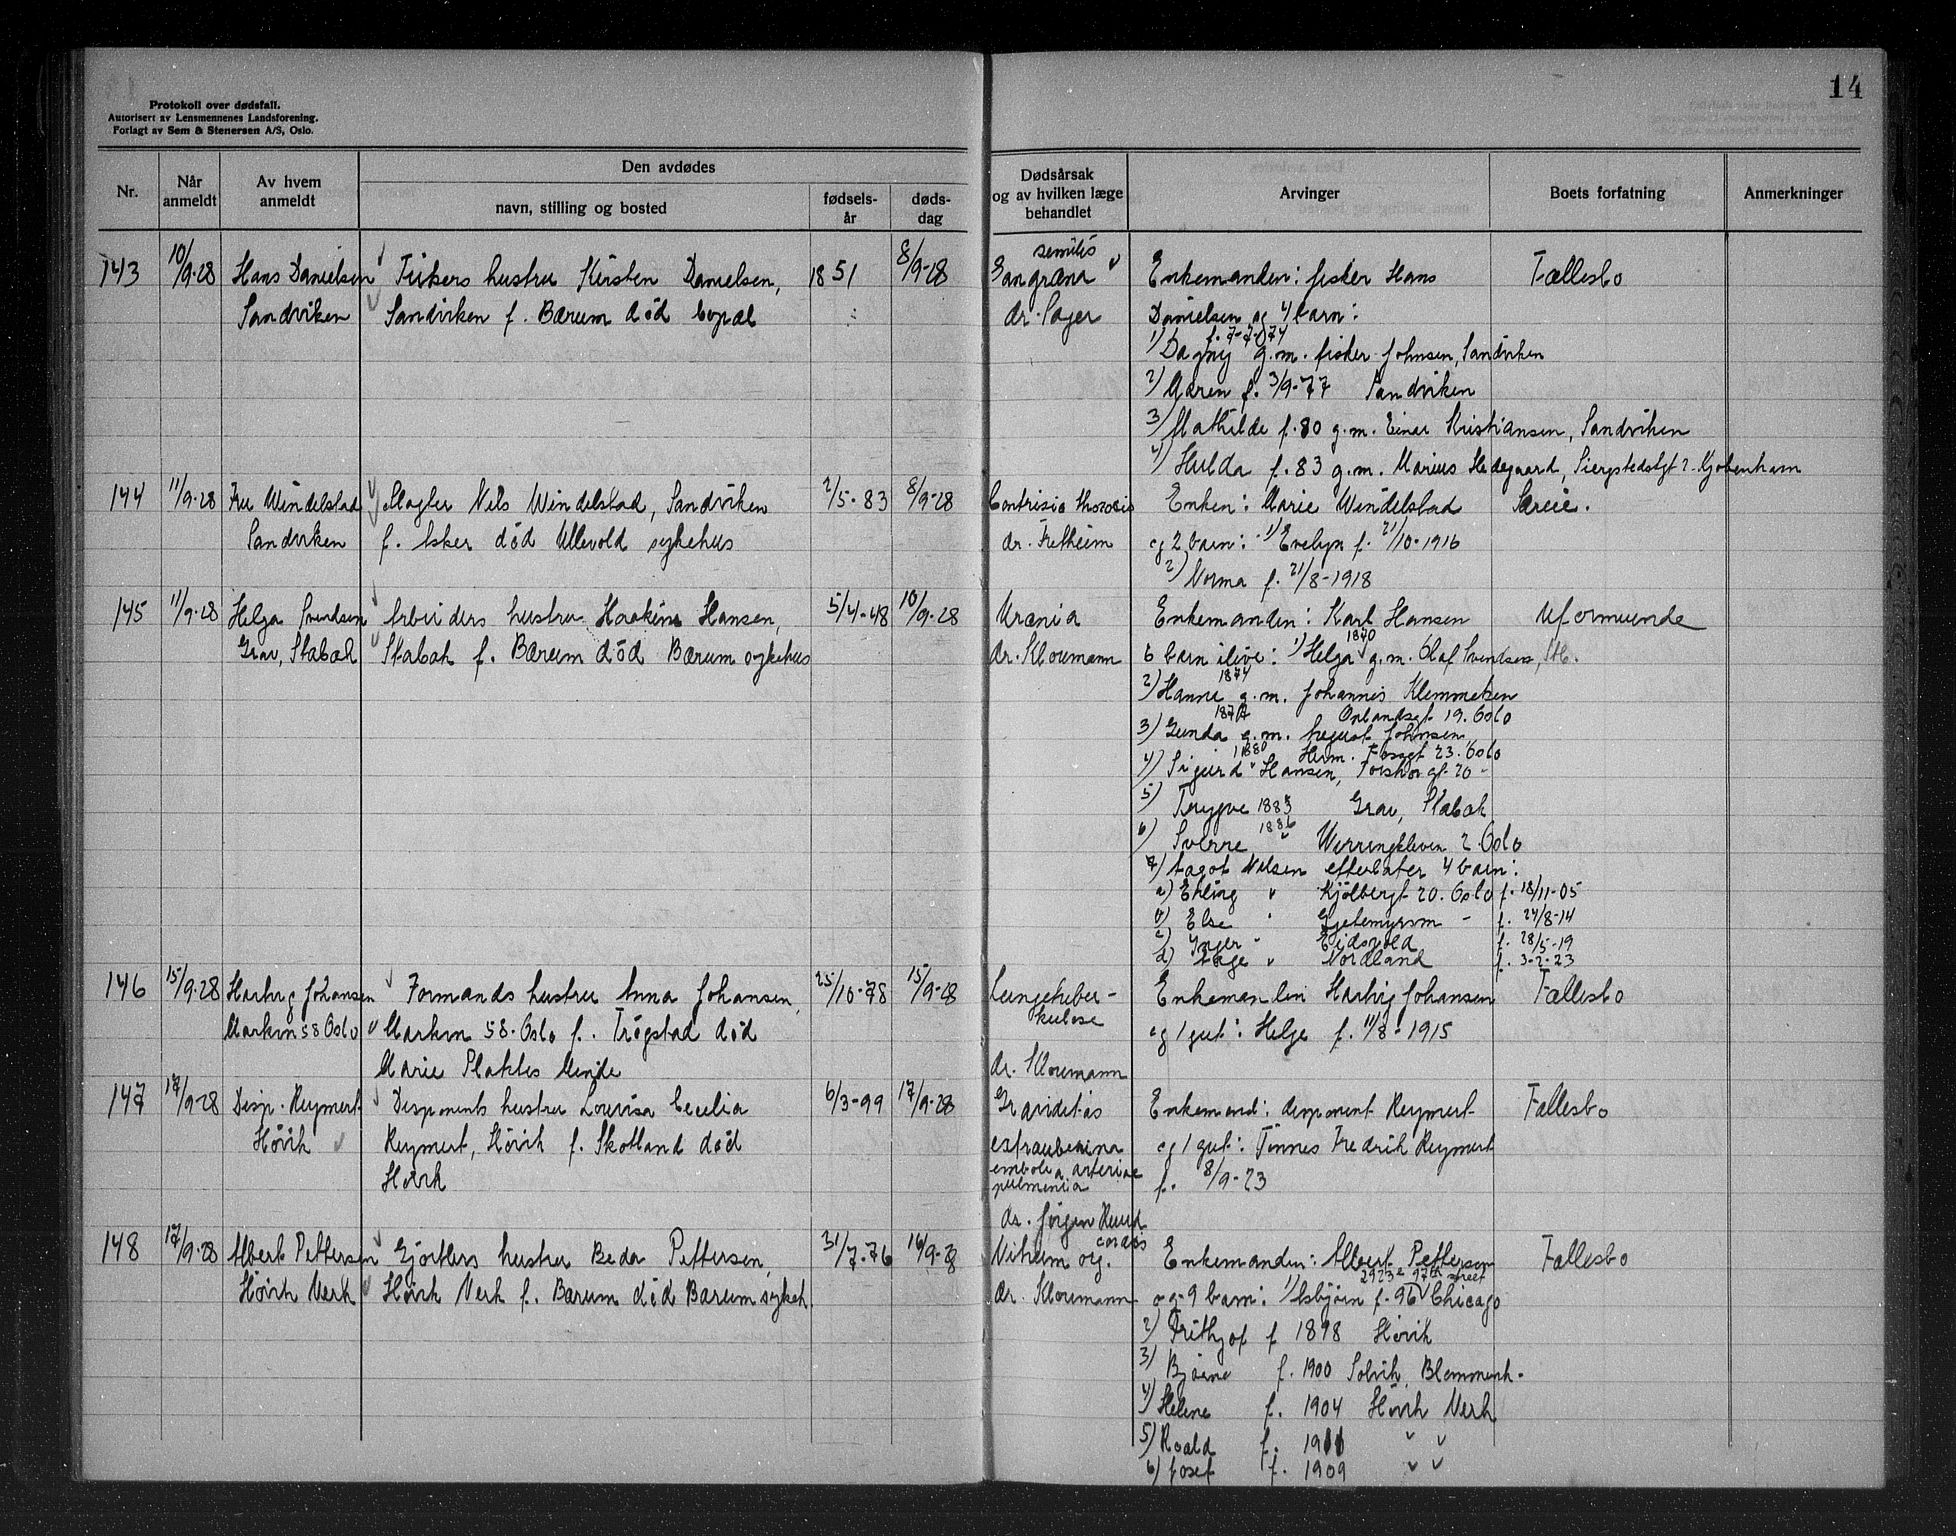 14
Protokoll over dødsfall.
Autorisert av Lensmennenes Landsforening.
Forlagt av Sem & Stenersen A/S, Oslo.
Nr. Når anmeldt Av hvem anmeldt Den avdødes navn, stilling og bosted fødsels-år døds-dag Dødsårsak og av hvilken læge behandlet Arvinger Boets forfatning Anmerkninger
143 10/9-28 Hans Danielsen Fiskers hustru Kirsten Danielsen, 1851 8/9-28
Sandviken Sandviken f. Bærum død
senilis
Gangræna Enkemanden: fisker Hans Fællesbo
dr. Danielsen og 4 barn:
f. 7-7-74
1) Dagny g.m. fisker Johnsen, Sandviken
2) Karen f. 3/9-77 Sandviken
3) Mathilde f. 80 g.m. Einar Kristiansen, Sandviken
4) Hulda f. 83 g.m. Marius Hedegaard, 2. Kjøbenhavn
144 11/9-28 Fru Windelstad Slagter Nils Windelstad, Sandviken 2/5-83 8/9-28
Sandviken f. Asker død Ullevold sykehus
Contusio thoracis Enken: Marie Windelstad Særeie.
dr. Fretheim og 2 barn: 1) Evelyn f. 21/10-1916
2) Norma f. 21/8-1918
145 11/9-28 Helga Svendsen Arbeiders hustru Hansen, 5/4-48 10/9-28
Grav, Stabæk Stabæk f. Bærum død Bærum sykehus
Urænia Enkemanden: Karl Hansen Uformuende
1870
dr. Kloumann 6 barn ilive: 1) Helga g.m. Olaf Svendsen, Stb.
1874
2) Hanna g.m. Johannes Klemmetsen
1877 19. Oslo
3) Gunda g.m. August Johnsen
1880 Herm. Fossgt 23. Oslo
4) Sigurd Hansen, 20 -
5) Trygve 1883 Grav, Stabæk
1886
6) Sverre " 2. Oslo
7) Aagot Nilsen efterlater 4 barn:
a) Erling " Kjølberggt 20. Oslo f. 18/11-05
b) Else " Gjetemyrsvn - f. 24/8-14
c) Inger " Eidsvold f. 28/5-19
d) Aage " Nordland f. 3-2-23
146 15/9-28 Hartvig Johansen Formands hustru Anna Johansen, 25/10-78 15/9-28
Markvn 58 Oslo Markvn 58. Oslo f. Trøgstad død
Marie Plahtes Minde
Lungetuber- Enkemanden Hartvig Johansen Fællesbo
kulose og 1 gut: Helge f. 11/8-1915
dr. Kloumann
147 17/9-28 Disp. Reymert Disponents hustru Louisa Cecilia 6/3-99 17/9-28
Høvik Reymert, Høvik f. Skotland død
Høvik
Graviditas Enkemand: disponent Reymert Fællesbo
extrauterina og 1 gut: Tønnes Fredrik Reymert
emboli a. arteriae f. 8/9-23
dr. Jørgen Ruud
148 17/9-28 Albert Pettersen Gjørtlers hustru Beda Pettersen, 31/7-76 16/9-28
Høvik Verk Høvik Verk f. Bærum død Bærum sykeh.
cordis
Vitium org. Enkemanden: Albert Pettersen Fællesbo
2923 e 97th street
dr. Kloumann og 9 barn: 1) Asbjørn f. 96 Chicago
2) Frithjof f 1898 Høvik
3) Bjarne f. 1900 Solvik, Blommenh.
4) Helene f. 1904 Høvik Verk
5) Roald f. 1911 " "
6) Josef f. 1909 " "